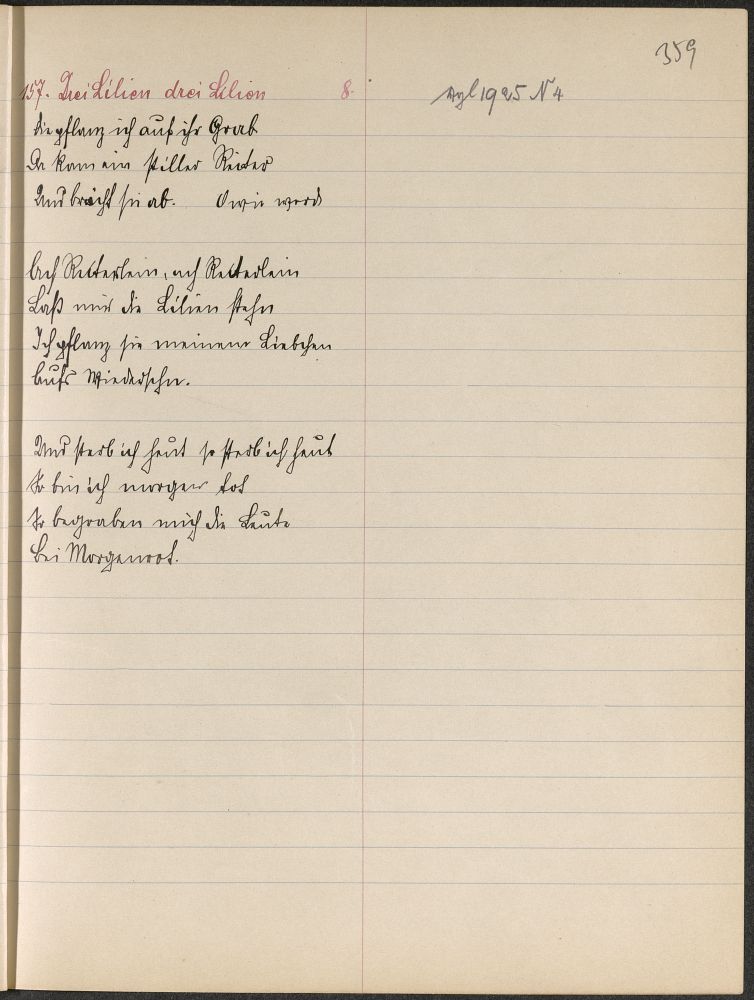 359
157. Drei Lilien drei Lilien 8.
vgl 1925 N 4
die pflanz ich auf ihr Grab
Da kam ein stiller Reiter
Und bricht sie ab. O wie werd
Ach Reiterlein, ach Reiterlein
Laß mir die Lilien stehn
Ich pflanz sie meinem Liebchen
Aufs Wiedersehn.
Und sterb ich heut so sterb ich heut
So bin ich morgen tot
So begraben mich die Leute
Bei Morgenrot.